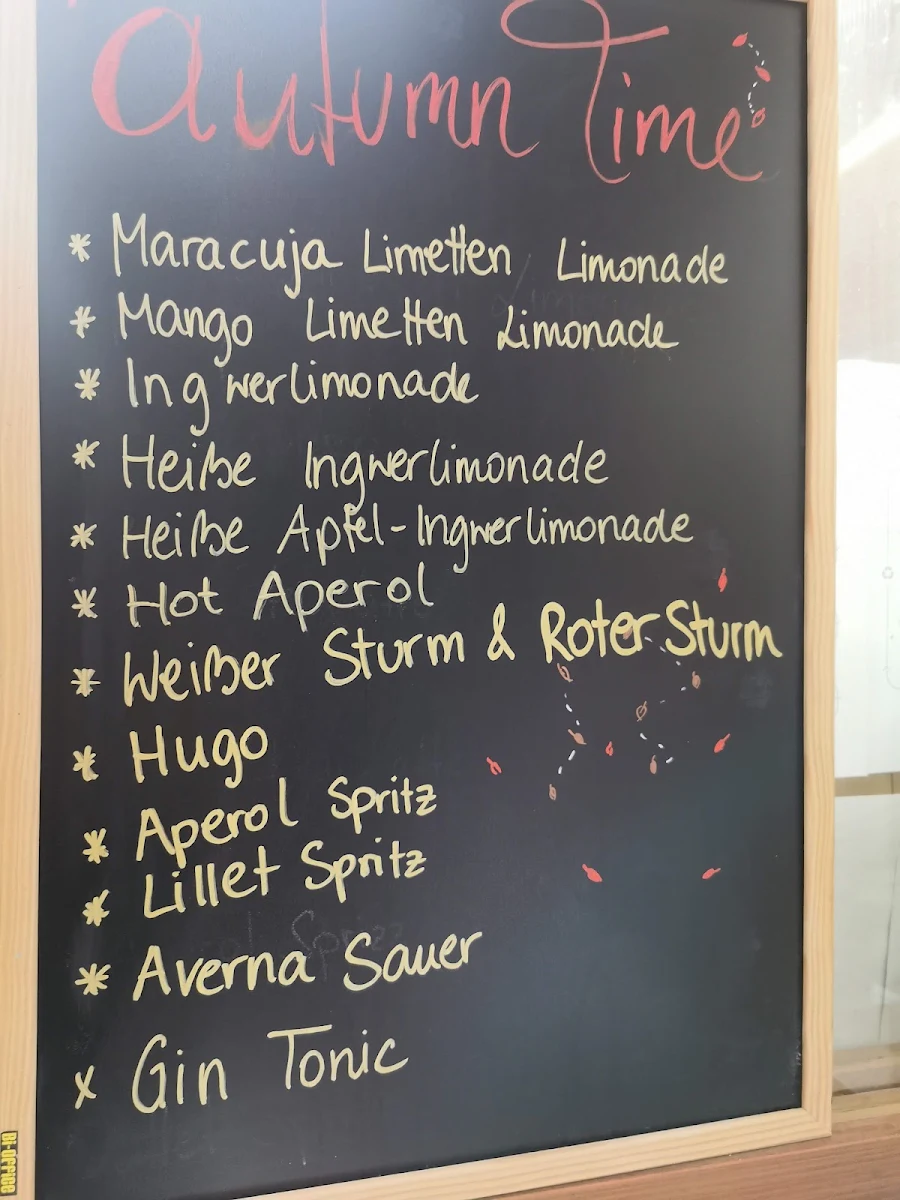 Autumn Time
* Maracuja Limetten Limonade
* Mango Limetten Limonade
* Ingwerlimonade
* Heiße Ingwerlimonade
* Heiße Apfel-Ingwerlimonade
* Hot Aperol
* Weißer Sturm & Roter Sturm
* Hugo
* Aperol Spritz
* Lillet Spritz
* Averna Sauer
x Gin Tonic
Bi-Office